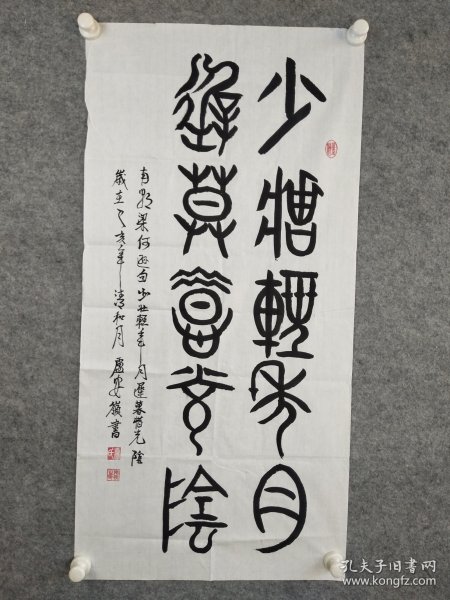 少壯輕年月
遲暮惜光陰
南朝梁何遜句少壯輕年月遲暮惜光陰
歲在己亥年清和月盧書
孔夫子旧书网
www.kongfz.com